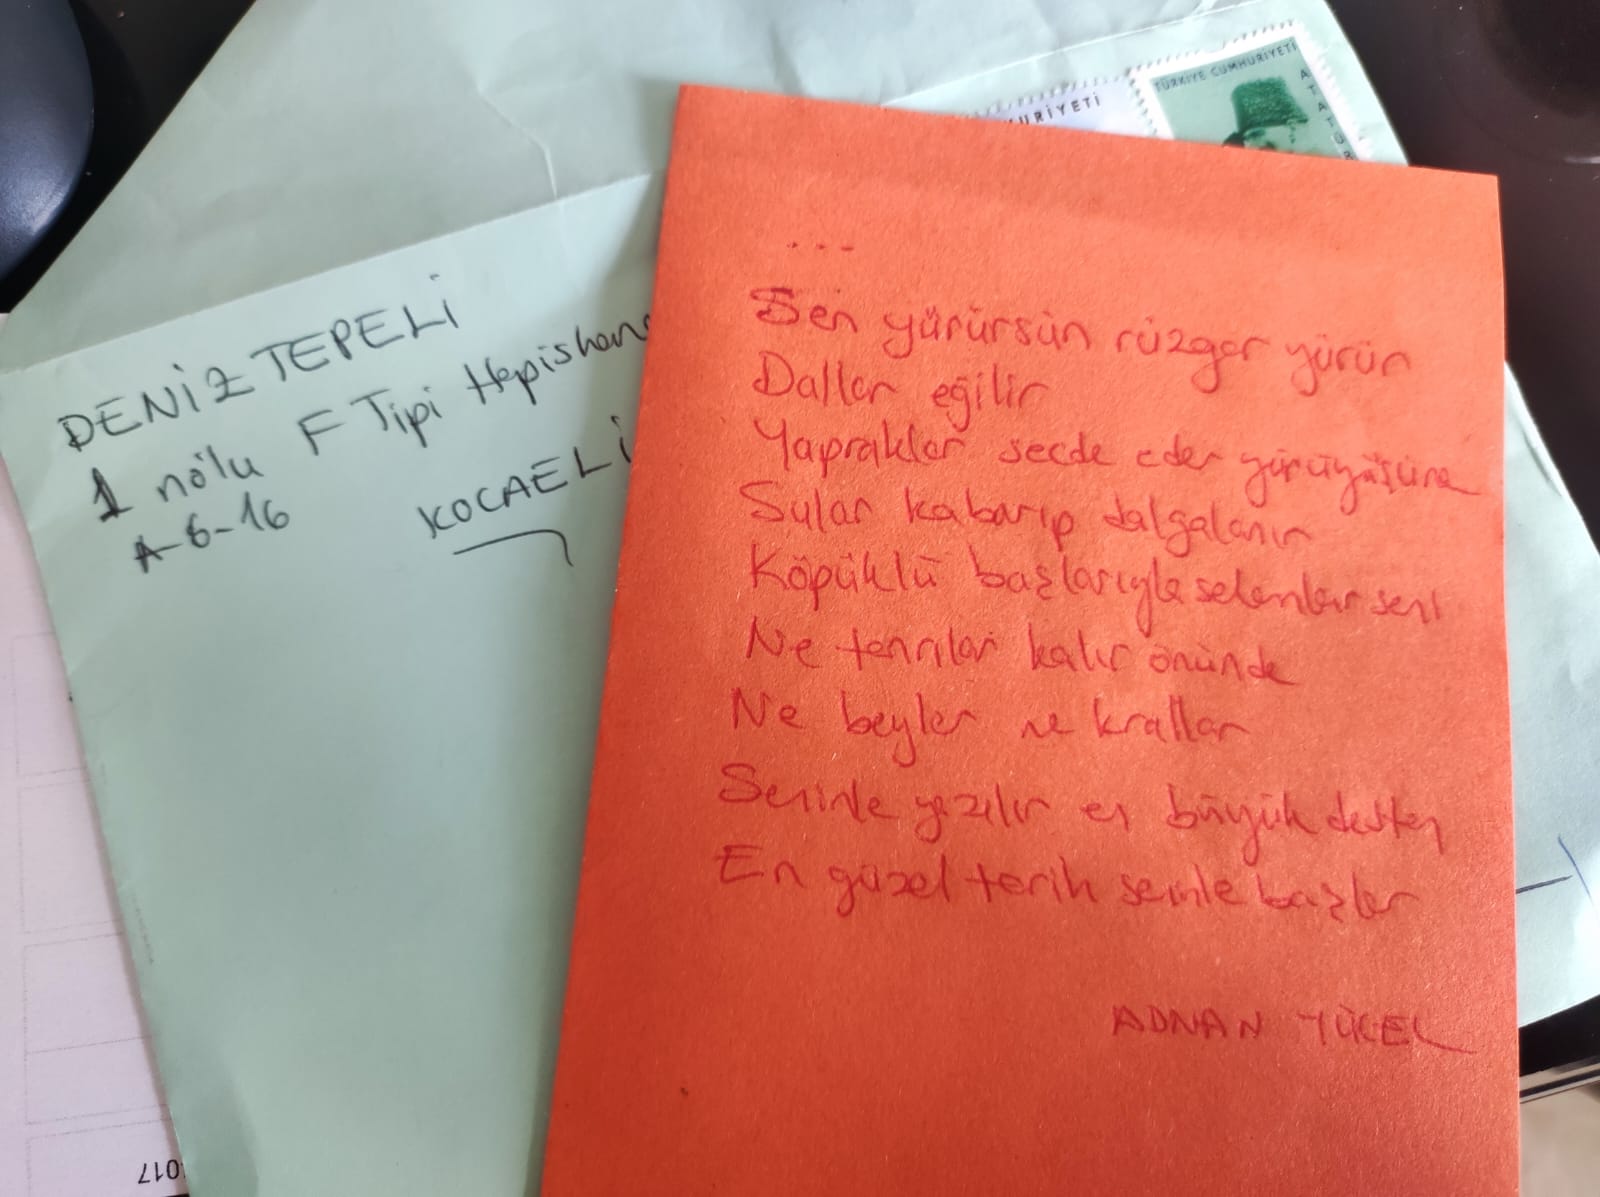 TÜRKİYE CUMHURİYETİ
URİYETİ
DENİZ TEPELİ
1 no'lu F Tipi Hapishane
A-6-16
KOCAELİ
...
Sen yürürsün rüzgar yürür
Dallar eğilir
Yapraklar secde eder yürüyüşüne
Sular kabarıp dalgalanır
Köpüklü başlarıyla selamlar seni
Ne tanrılar kalır önünde
Ne beyler ne krallar
Seninle yazılır en büyük destan
En güzel tarih seninle başlar
ADNAN YÜCEL
017